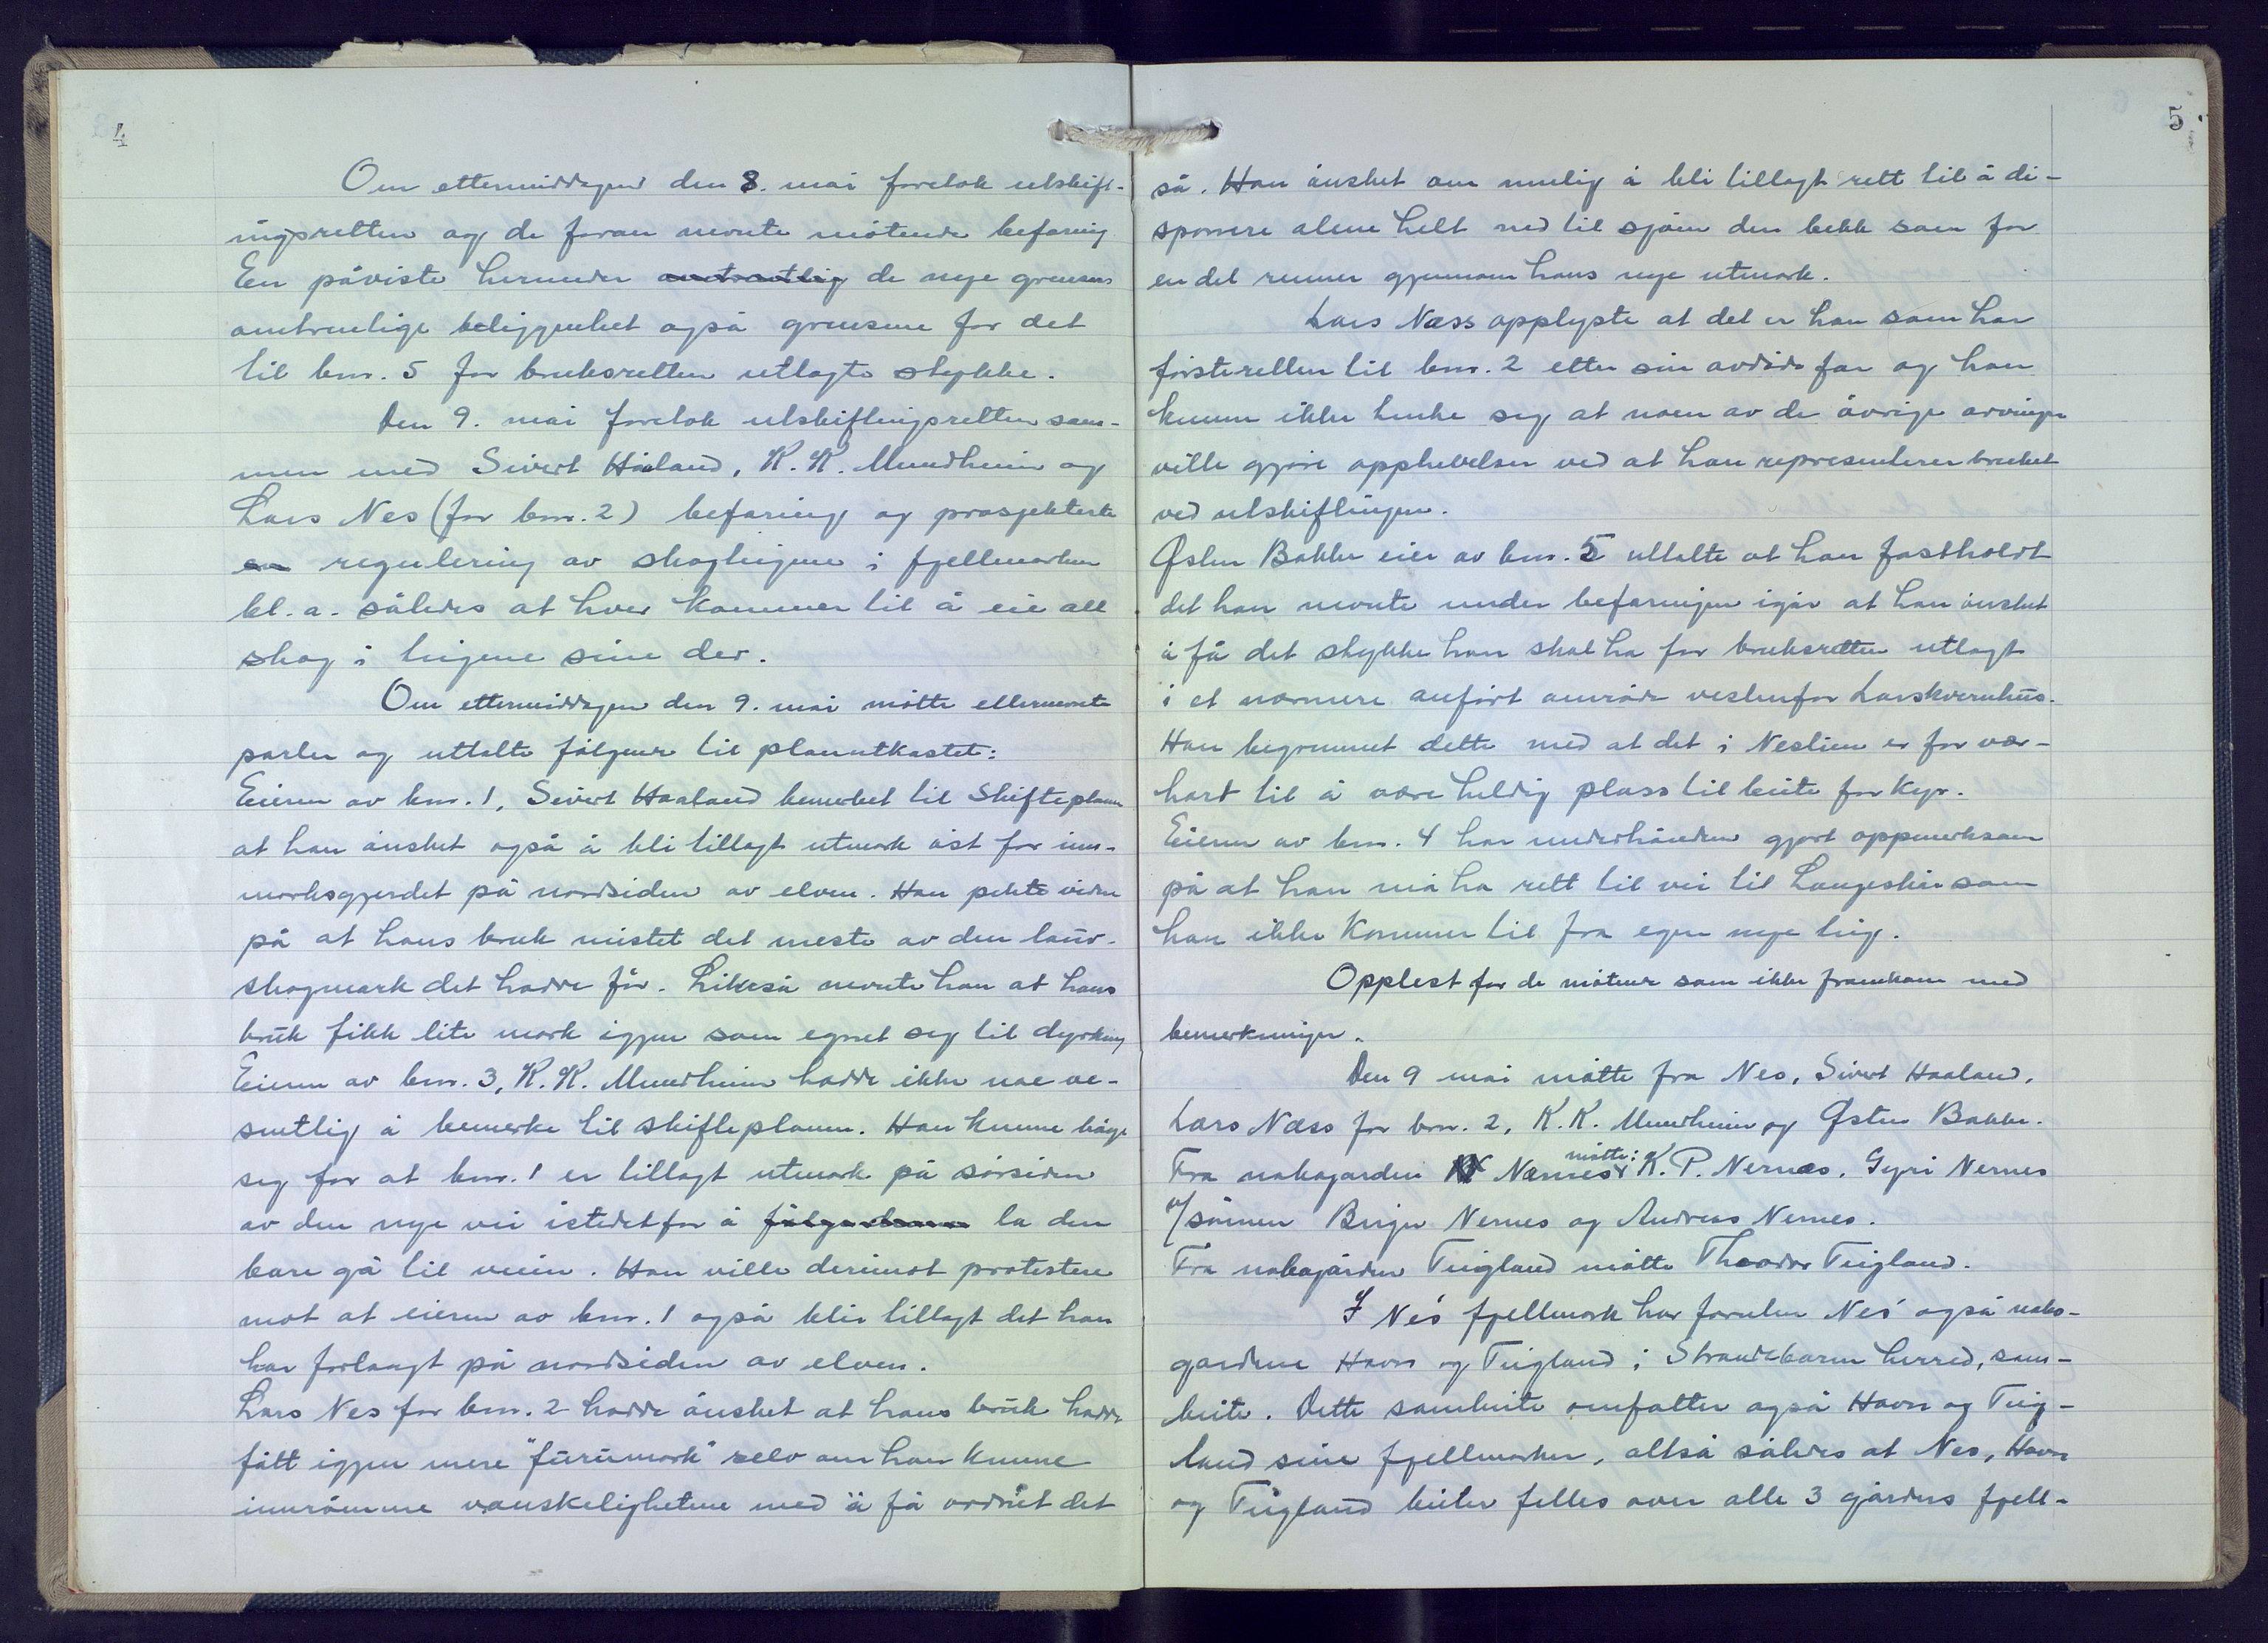 4
Om ettermiddagen den 8. mai foretok utskift-
ningsretten og de foran nevnte møtende befaring
En påviste herunder omtrentlig de nye grensers
omtrentlige beliggenhet også grensene for det
til bnr. 5 for bruksretten utlagte stykke.
Den 9. mai foretok utskiftingsretten sam-
men med Sivert Håland, K. K. Mundheim og
Lars Nes (for bnr. 2) befaring og prosjekterte
en regulering av skogteigene i fjellmarken
bl. a. således at hver kommer til å eie all
skog i teigene sine der.
Om ettermiddagen den 9. mai møtte etternevnte
parter og uttalte følgende til planutkastet:
Eieren av bnr. 1, Sivert Haaland bemerket til skifteplanen
at han ønsket også å bli tillagt utmark øst for inn-
marksgjerdet på nordsiden av elven. Han pekte videre
på at hans bruk mistet det meste av den lauv-
skogmark det hadde før. Likeså nevnte han at hans
bruk fikk lite mark igjen som egnet seg til dyrking
Eieren av bnr. 3, K. K. Mundheim hadde ikke noe ve-
sentlig å bemerke til skifteplanen. Han kunne bøye
seg for at bnr. 1 er tillagt utmark på sørsiden
av den nye vei istedetfor å la den
bare gå til veien. Han ville derimot protestere
mot at eieren av bnr. 1 også blir tillagt det han
har forlangt på nordsiden av elven.
Lars Nes for bnr. 2 hadde ønsket at hans bruk hadde
fått igjen mere "furumark" selv om han kunne
innrømme vanskelighetene med å få ordnet det
5
så. Han ønsket om mulig å bli tillagt rett til å di-
sponere alene helt ned til sjøen den bekk som for
en del renner gjennom hans nye utmark.
Lars Næss opplyste at det er han som har
førsteretten til bnr. 2 etter sin avdøde far og han
kunne ikke tenke seg at noen av de øvrige arvinger
ville gjøre opphevelser ved at han representerer bruket
ved utskiftingen.
Østen Bakke eier av bnr. 5 uttalte at han fastholdt
det han nevnte under befaringen igår at han ønsket
å få det stykke han skal ha for bruksretten utlagt
i et nærmere anført område vestenfor Larskvernhus.
Han begrunnet dette med at det i Neslien er for vær-
hart til å være heldig plass til beite for kyr.
Eieren av bnr. 4 har underhånden gjort oppmerksom
på at han må ha rett til vei til Langeskår som
han ikke kommer til fra egen nye teig.
Opplest for de møtende som ikke framkom med
bemerkninger.
Den 9 mai møtte fra Nes, Sivert Haaland,
Lars Næss for bnr. 2, K. K. Mundheim og Østen Bakke.
Fra nabogarden Nernes møtte: K. P. Nernes, Gyri Nernes
v/sønnen Birger Nernes og Andreas Nernes.
Fra nabogården Teigland møtte Theodor Teigland.
I Nes' fjellmark har foruten Nes' også nabo-
gardene Havn og Teigland i Strandebarm herred, sam-
beite. Dette sambeite omfatter også Havn og Teig-
land sine fjellmarker, altså således at Nes, Havn
og Teigland beiter felles over alle 3 gårders fjell-